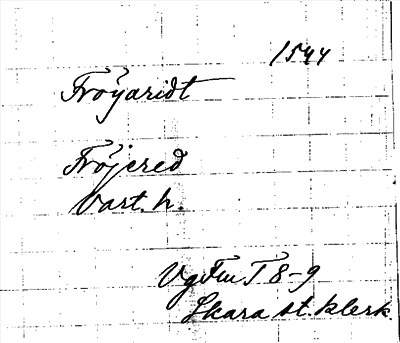 1544
Fröyaridt
Fröjered
Vart. h.
VgFmT 8-9
Skara st. klerk.